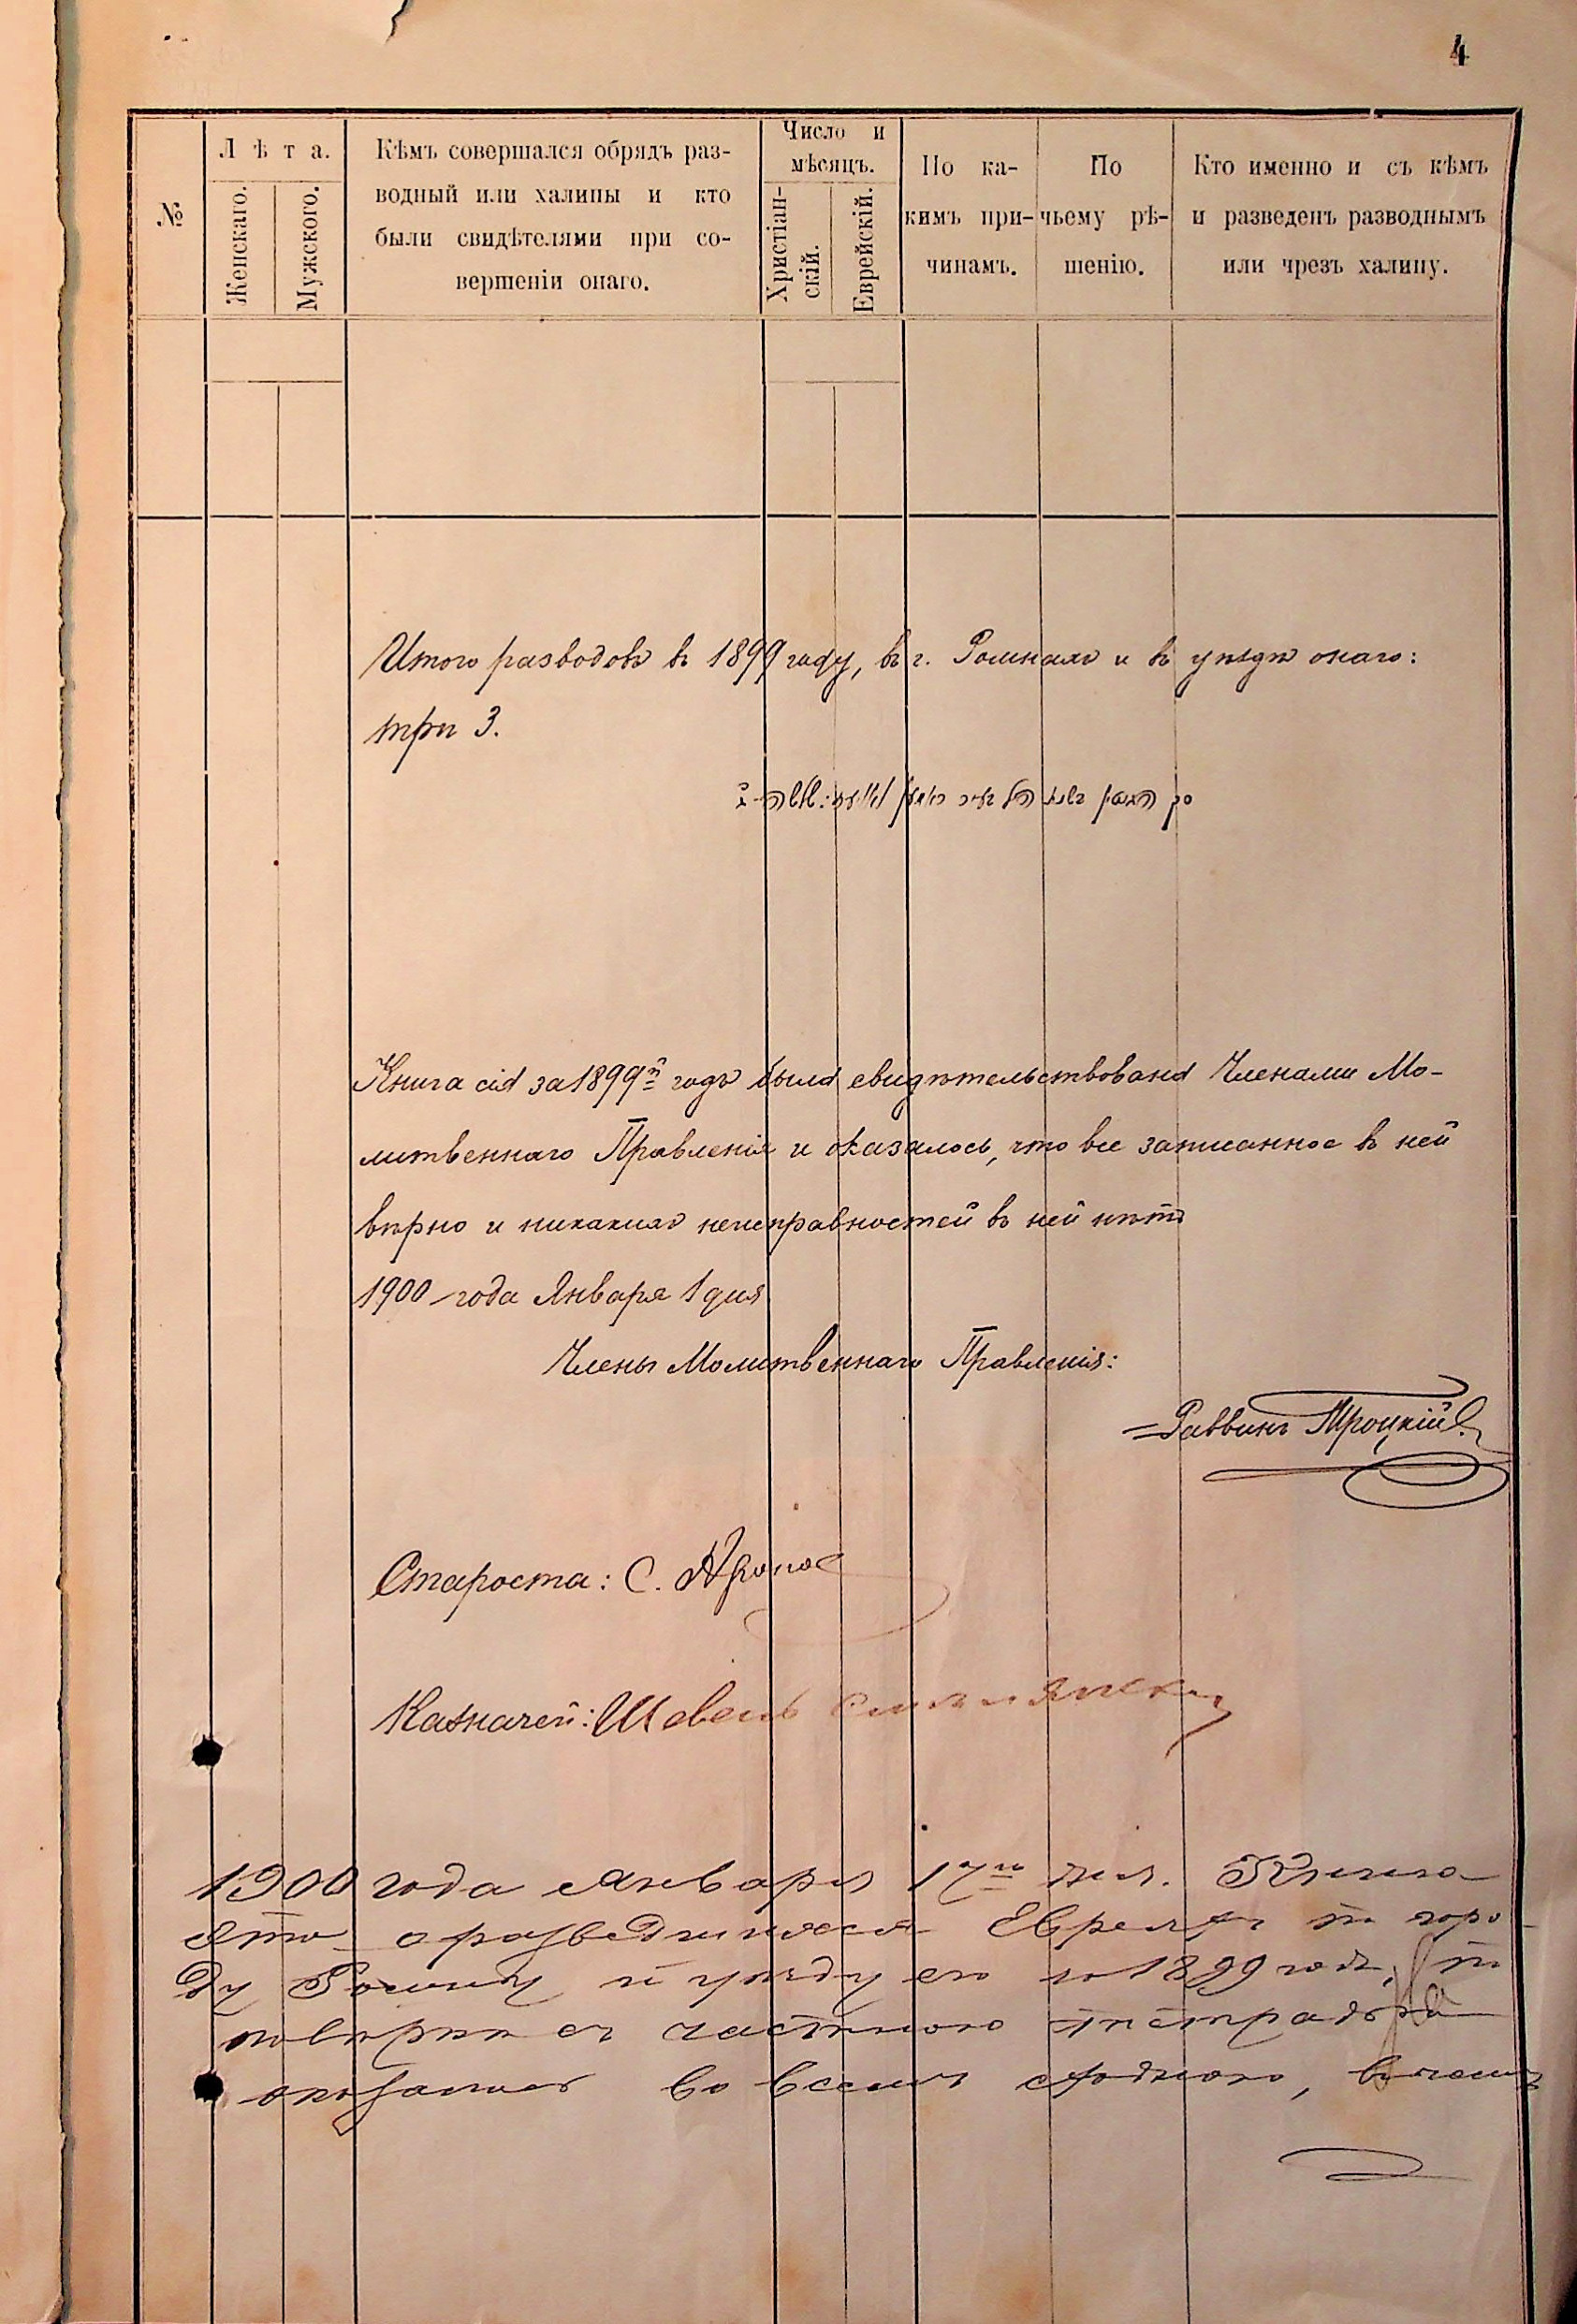 4
№
Лѣта.
Женскаго.
Мужского.
Кѣмъ совершался обрядъ раз-
водный или халицы и кто
были свидѣтелями при со-
вершеніи онаго.
Число и
мѣсяцъ.
Христіан-
скій.
Еврейскій.
По ка-
кимъ при-
чинамъ.
По
чьему рѣ-
шенію.
Кто именно и съ кѣмъ
и разведенъ разводнымъ
или чрезъ халицу.
Итого разводовъ въ 1899 году, въ г. Ромнахъ и въ уѣздѣ онаго:
три 3.
Книга сія за 1899й годъ была свидѣтельствована Членами Мо-
литвеннаго Правленія и оказалось, что все записанное въ ней
вѣрно и никакихъ неисправностей въ ней нѣтъ
1900 года Января 1 дня
Члены Молитвеннаго Правленія:
Раввинъ Троцкій
Староста: С.
Казначей: Шевель
1900 года Января 17го дня. Книга
эта о разведшихся Евреяхъ по горо-
ду Ромну и уѣзду его за 1899 годъ, по
повѣркѣ съ частною тетрадью
оказалась во всемъ сходною, въ чемъ